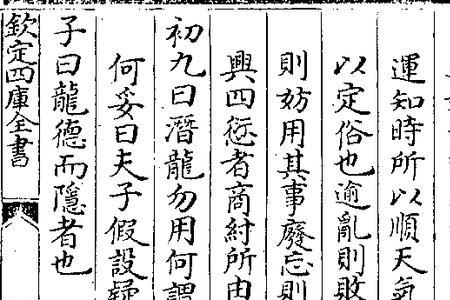 運知時所以順天氣
以定俗也逾亂則敗
則妨用其事廢忘則
興四愆者商紂所由
初九曰潛龍勿用何謂
何妥曰夫子假設疑
子曰龍德而隱者也
欽定四庫全書